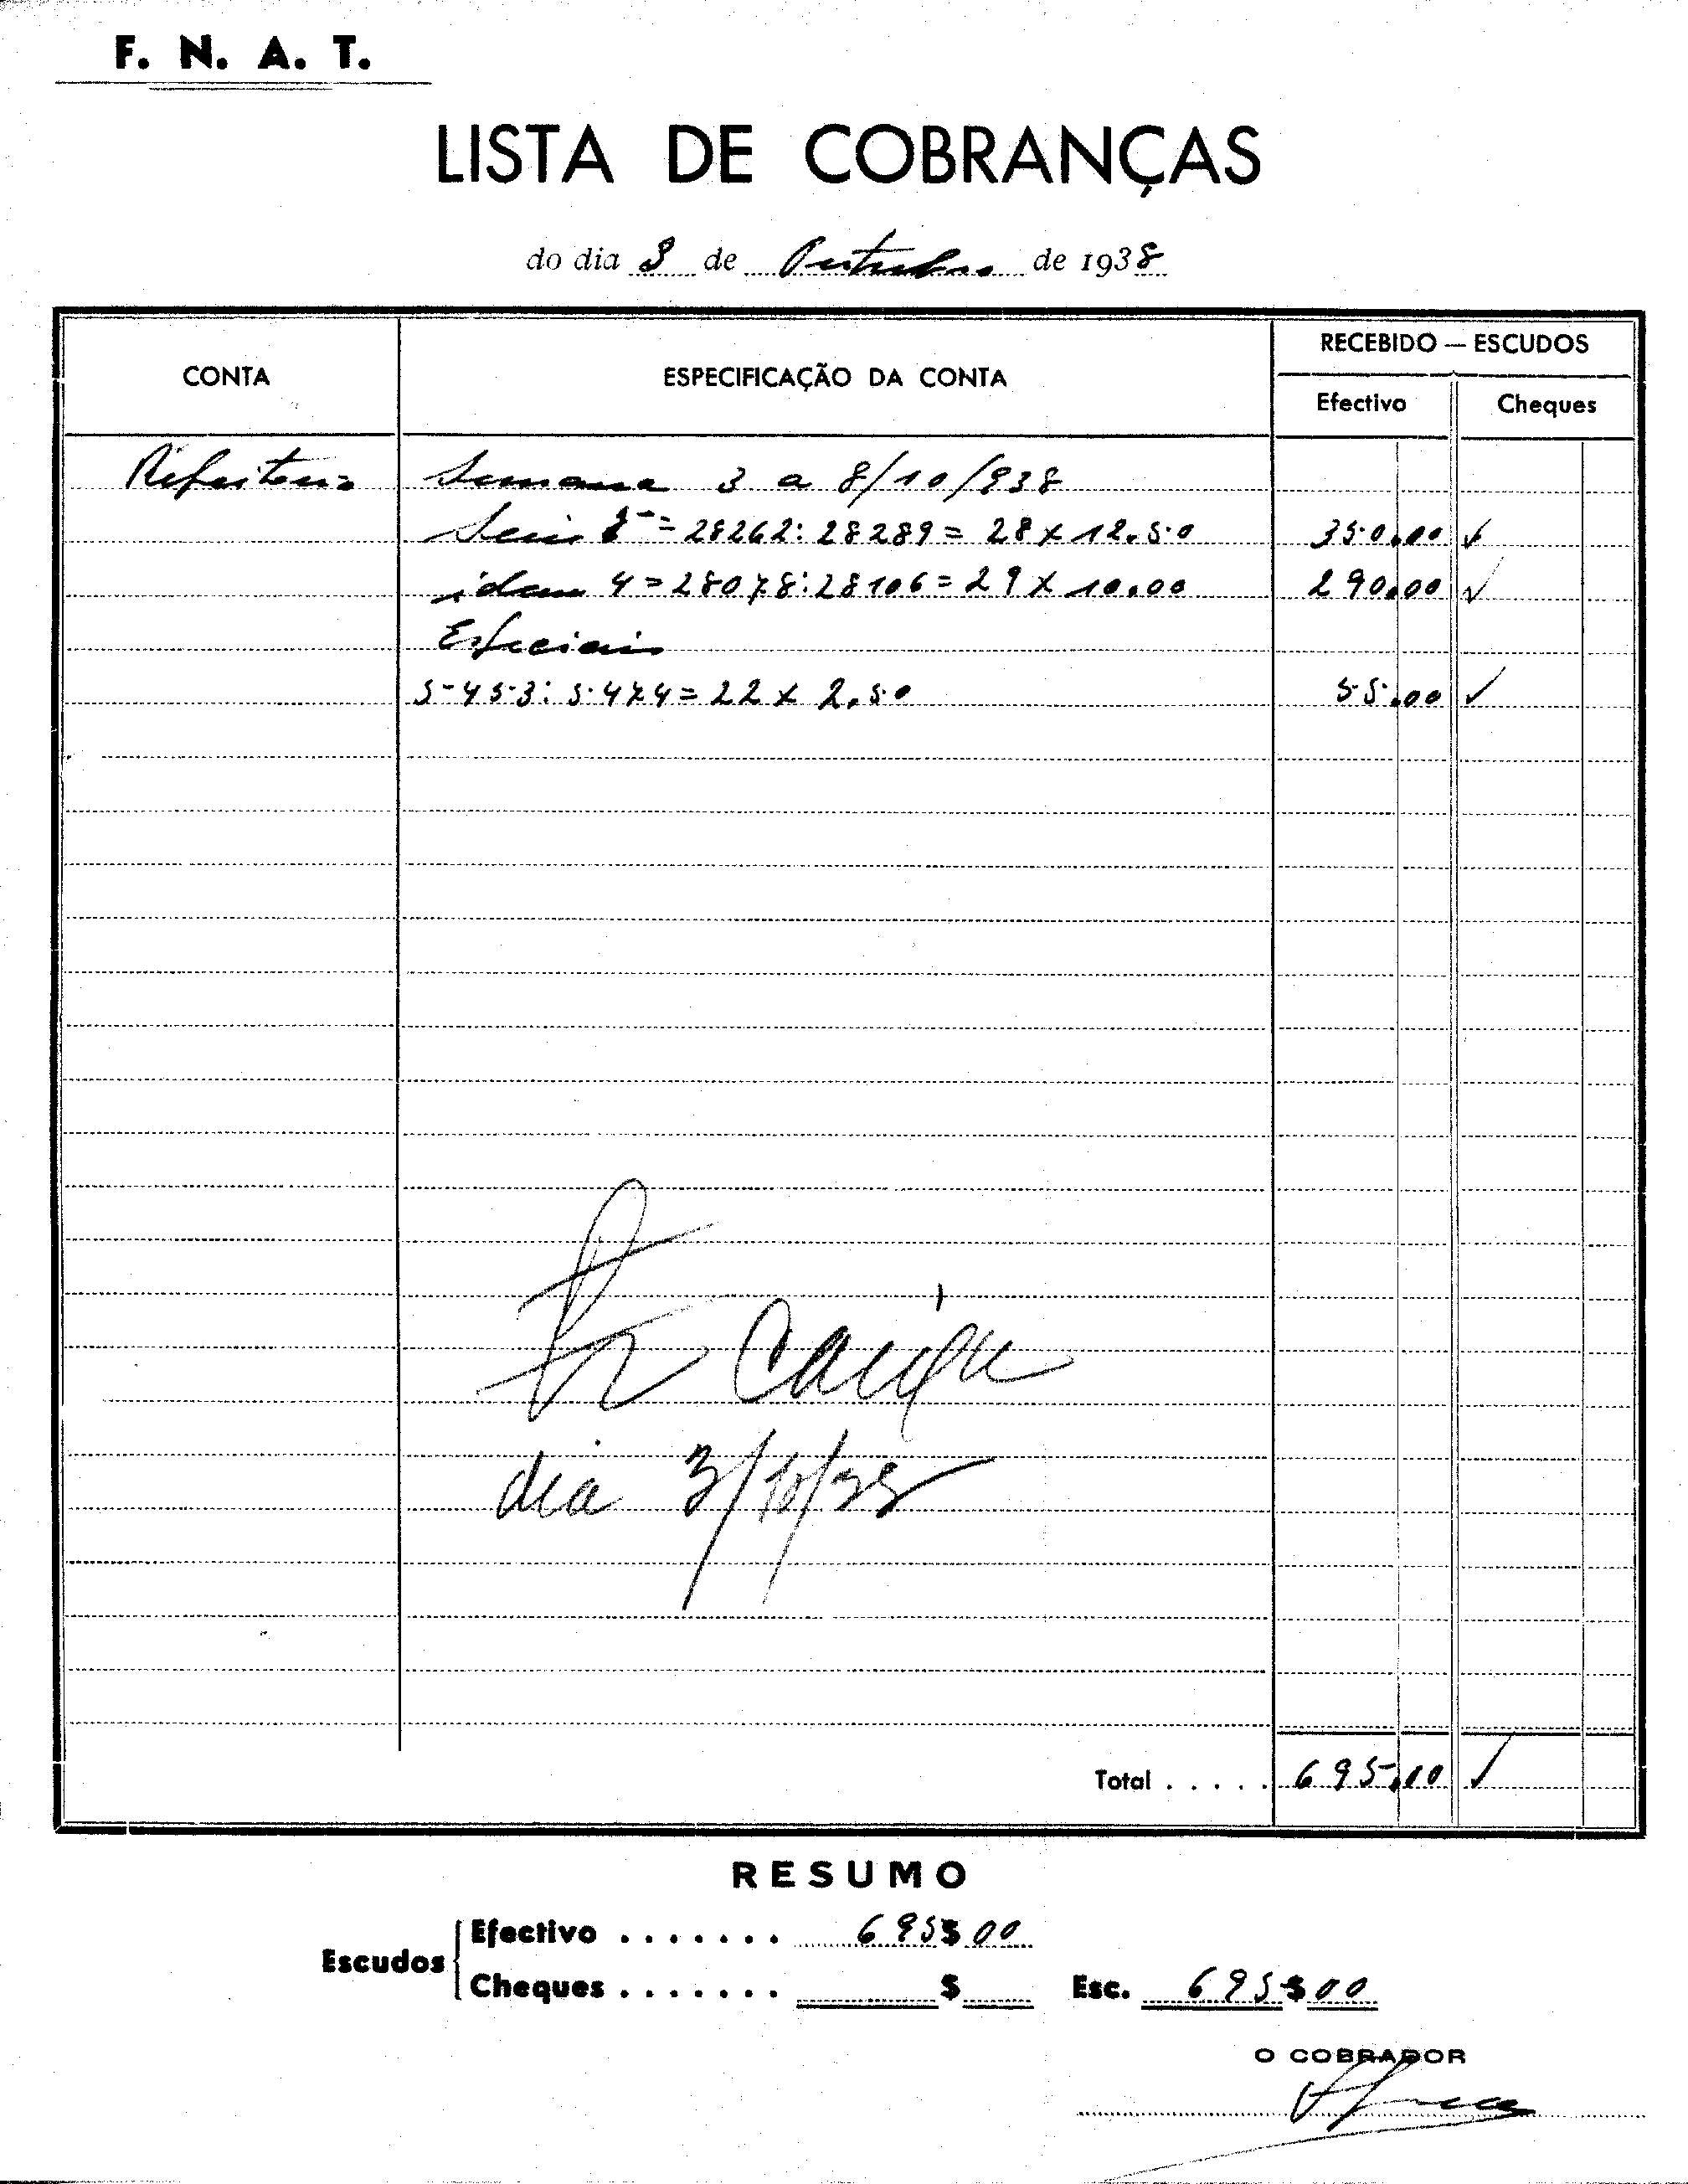 F. N. A. T.
LISTA DE COBRANÇAS
do dia 3 de Outubro de 1938
CONTA
ESPECIFICAÇÃO DA CONTA
RECEBIDO — ESCUDOS
Efectivo
Cheques
Refeitorio Semana 3 a 8/10/938
= 28262: 28289 = 28 x 12.50 350.00 ✓
idem 4 = 28078: 28106 = 29 x 10.00 290.00 ✓
Especiais
5453: 5474 = 22 x 2.50 55.00 ✓
Caixa
dia 3/10/38
Total . . . . . 695.00 ✓
RESUMO
Escudos
Efectivo . . . . . . . 695$00
Cheques . . . . . . . $ Esc. 695$00
O COBRADOR